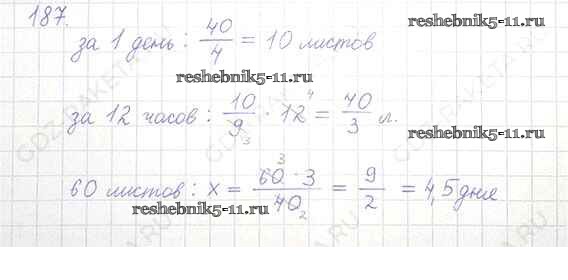 187.
reshebnik5-11.ru
за 1 день : 40/4 = 10 листов
reshebnik5-11.ru
за 12 часов : 10/9 3 · 12 4 = 40/3 л.
reshebnik5-11.ru
60 листов : x = 60 3 · 3 / 40 2 = 9/2 = 4,5 дня
reshebnik5-11.ru
GDZ-RAKETA.RU